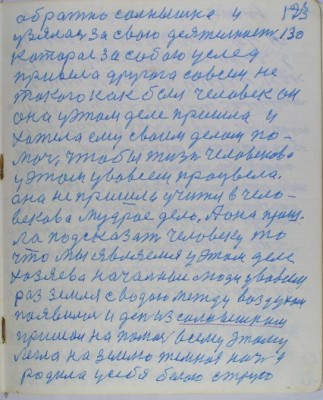 обратно солнышка и 173
взялась за свою деятельность 130
которая за собою у след
привела другога совсем не
такого как был человек он
она у этом деле пришла и
хотела ему своим делом по-
мочь, чтобы жизнь человекова
у этом у во всем процвела.
она не пришла учити в чело-
векова мудрое дело, А она приш-
ла подсказать человеку то
что мы являемся у этом деле
хозяева начальные люди у во всем
раз земля с водою между воздухом
появился и день из солнышкым
пришол на помоч всему этому
легла на землю темная ноч и
родила у себя белою струю